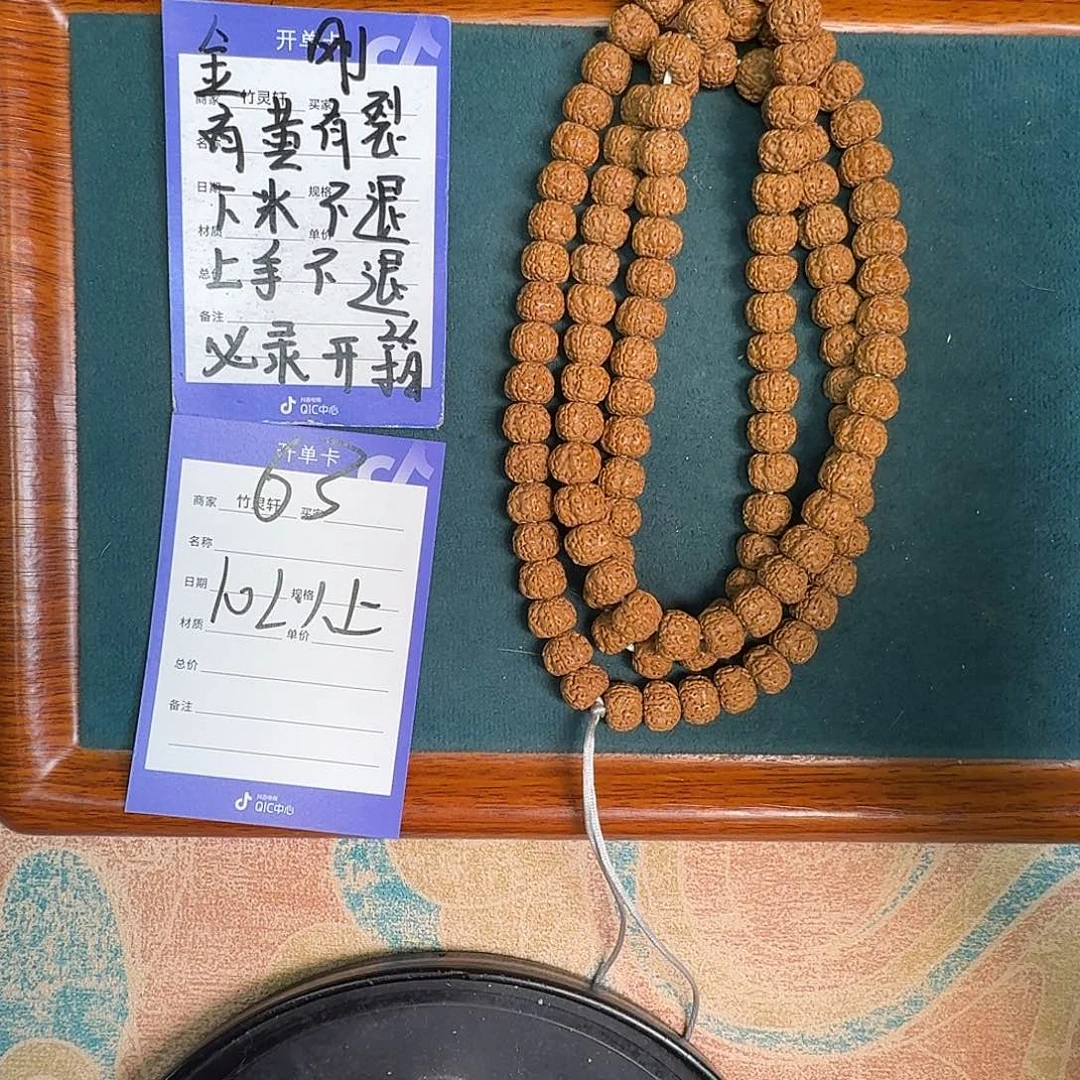 开单卡
金刚
商家 竹灵轩 买家
有黄有裂
日期 规格
下水不退
材质 单价
上手不退
备注
必录开箱
抖音电商
QIC中心
开单卡
63
商家 竹灵轩 买家
名称
日期 规格
102以上
材质 单价
总价
备注
抖音电商
QIC中心